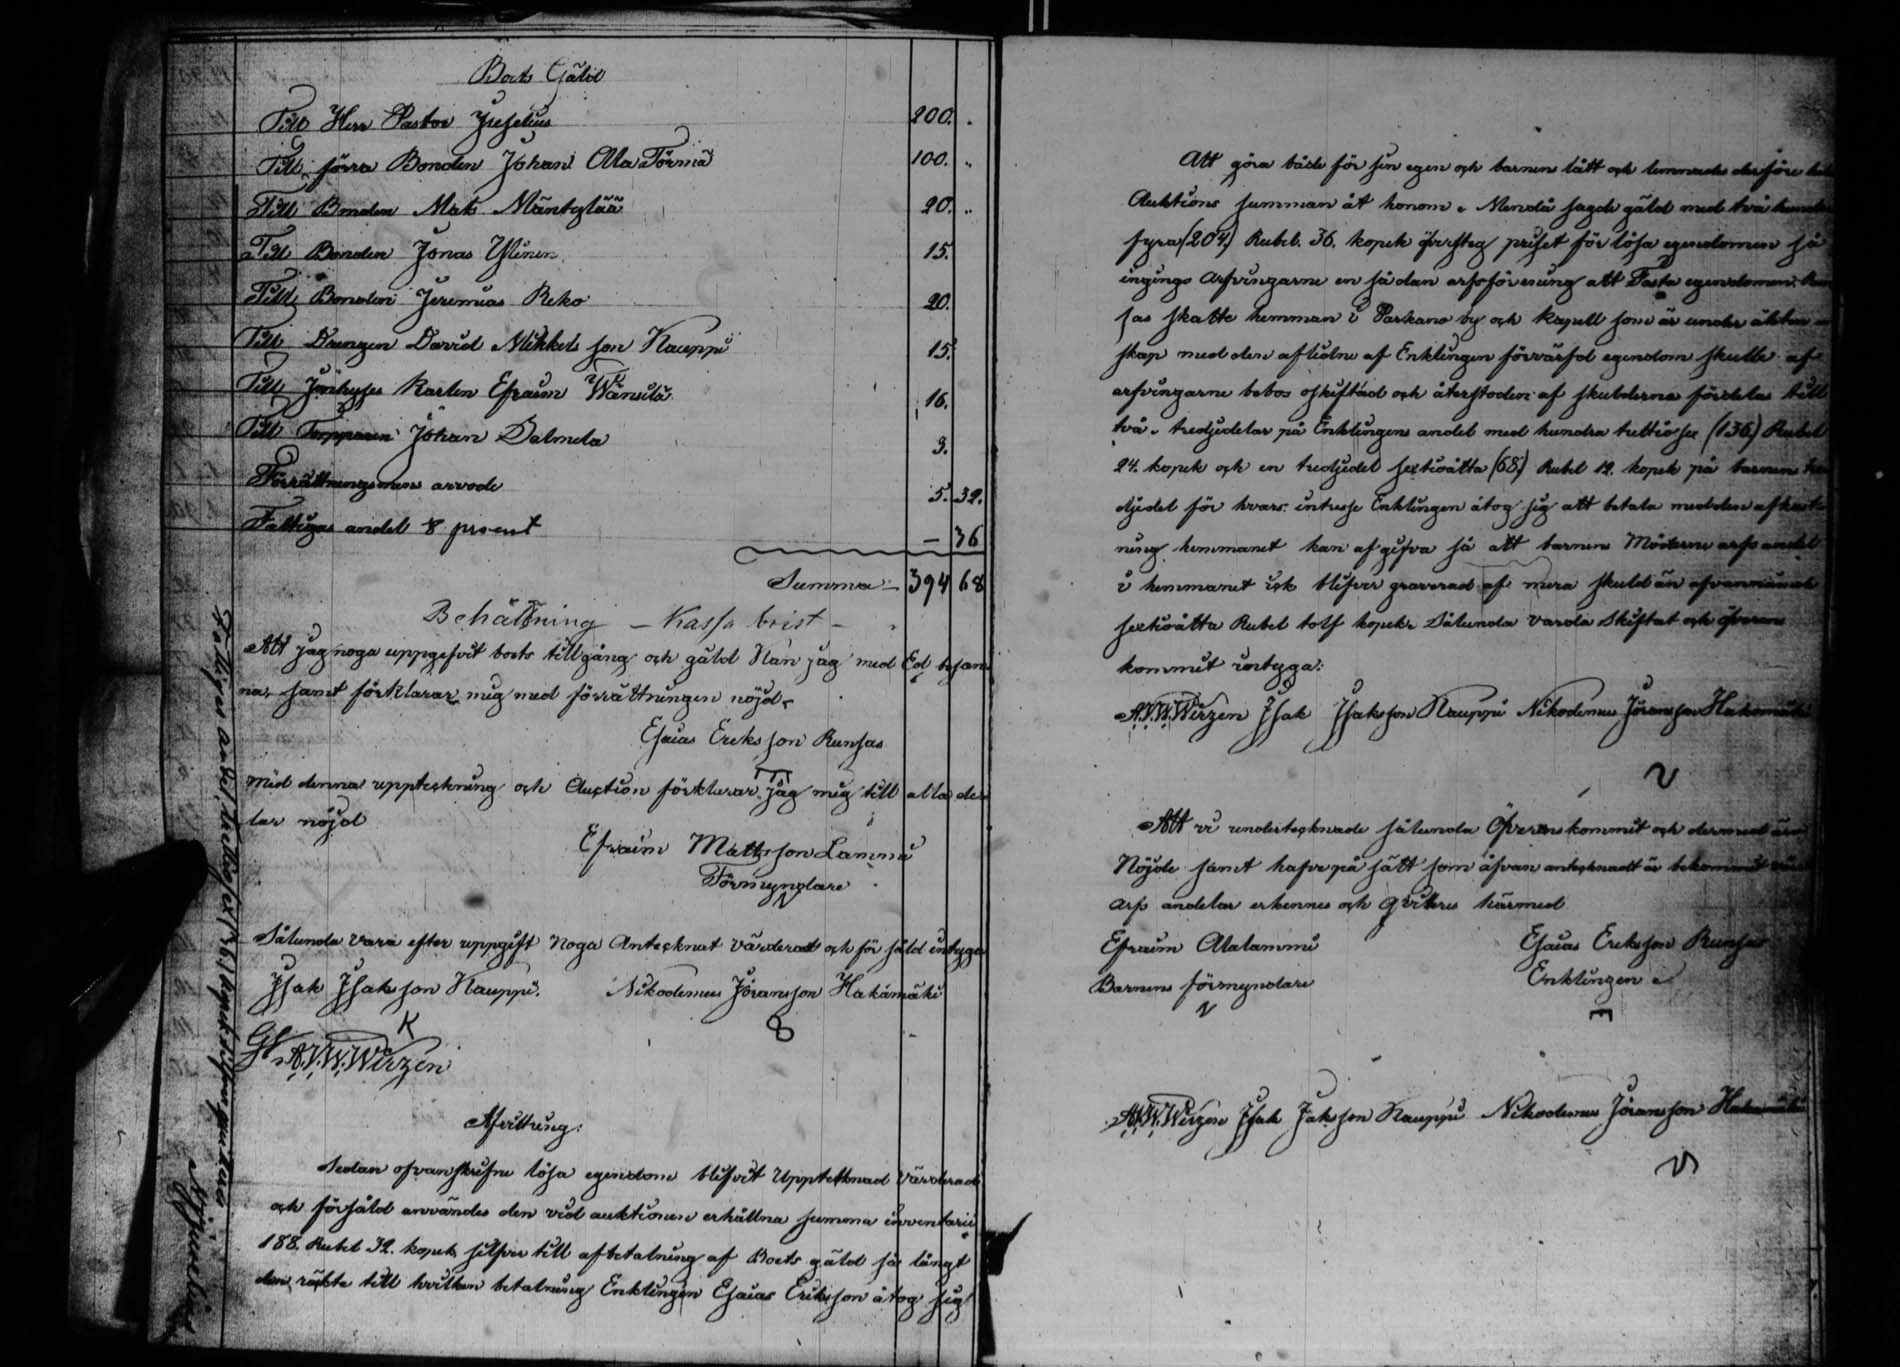 Boets Gäld
Till Herr Pastor Juselius 200. „
Till förra Bonden Johan Ala Törmä 100. „
Till Bonden Mats Mäntylää 20. „
Till Bonden Jonas Ylinen 15.
Till Bonden Jeremias Reko 20.
Till Drengen David Mikkels son Kauppi 15.
Till Karlen Efraim Wänsilä 16.
Till Torparen Johan Salmela 3.
Förrättningsmans arvode 5. 32.
Fattigas andel 8 procent — 36
Summa — 394 68
Behållning — Kassa brist —
Att jag noga uppgifvit boets tillgång och gäld Kan jag med Ed besan
na, samt förklarar mig med förrättningen nöjd.
Esaias Eriks son Runsas
Med denna uppteckning och Auction förklarar jag mig till alla de
lar nöjd
Efraim Mattsson Lammi
Förmyndare
Sålunda vara efter uppgift Noga Antecknat värderat och för såld intyga
Isak Isaksson Kauppi. Nikodemus Jöransson Hakamäki
A.V.W. Wirzen
Afvittring:
Sedan ofvanskrefne lösa egendom blifvit Upptecknad Värderad
och försåld användes den vid auktionen erhållna summa inventarii
188. Rubel 32. kopek silfver till afbetalning af Boets gäld så långt
den räckte till hvilken betalning Enklingen Esaias Eriksson åtog sig
Fattiges andel, trettiosex (36) kopek silfver
Juselius
Att göra både för sin egen och barnens lått och lemnades derföre hela
Auktions summan åt honom. Men då sagde gäld med två hundra
fyra (204) Rubel. 36. kopek öfversteg priset för lösa egendomen så
ingingo Arfvingarne en sådan arfsförening att Fasta egendomen, Run
sas skatte hemman i Parkano by och kapell som är under åbo
skap med den aflidne af Enklingen förvärfd egendom skulle af
arfvingarne bebos oskiftad och återstoden af skulderne fördelas till
två tredjedelar på Enklingens andel med hundra trettiosex (136) Rubel
24. kopek och en tredjedel sextioåtta (68) Rubel 12. kopek på barnens tre
djedel för hvars intresse Enklingen åtog sig att betala med den afkast
ning hemmanet kan afgifva så att barnens Möderne arfs andel
i hemmanet icke blifver graverad af mera skuld än ofvannämde
sextioåtta Rubel tolf kopek. Sålunda varda Skiftat och öfverens
kommit intyga:
A.V.W. Wirzen Isak Isaksson Kauppi Nikodemus Jöransson Hakamäki
Att vi undertecknade sålunda Öfverenskommit och dermed äro
Nöjde samt hafve på sätt som åfvan antecknadt är bekommit våra
arfs andelar erkennes och qvitteres härmed
Efraim Alalammi Esaias Eriksson Runsas
Barnens förmyndare Enklingen
A.V.W. Wirzen Isak Isaksson Kauppi Nikodemus Jöransson Hakamäki